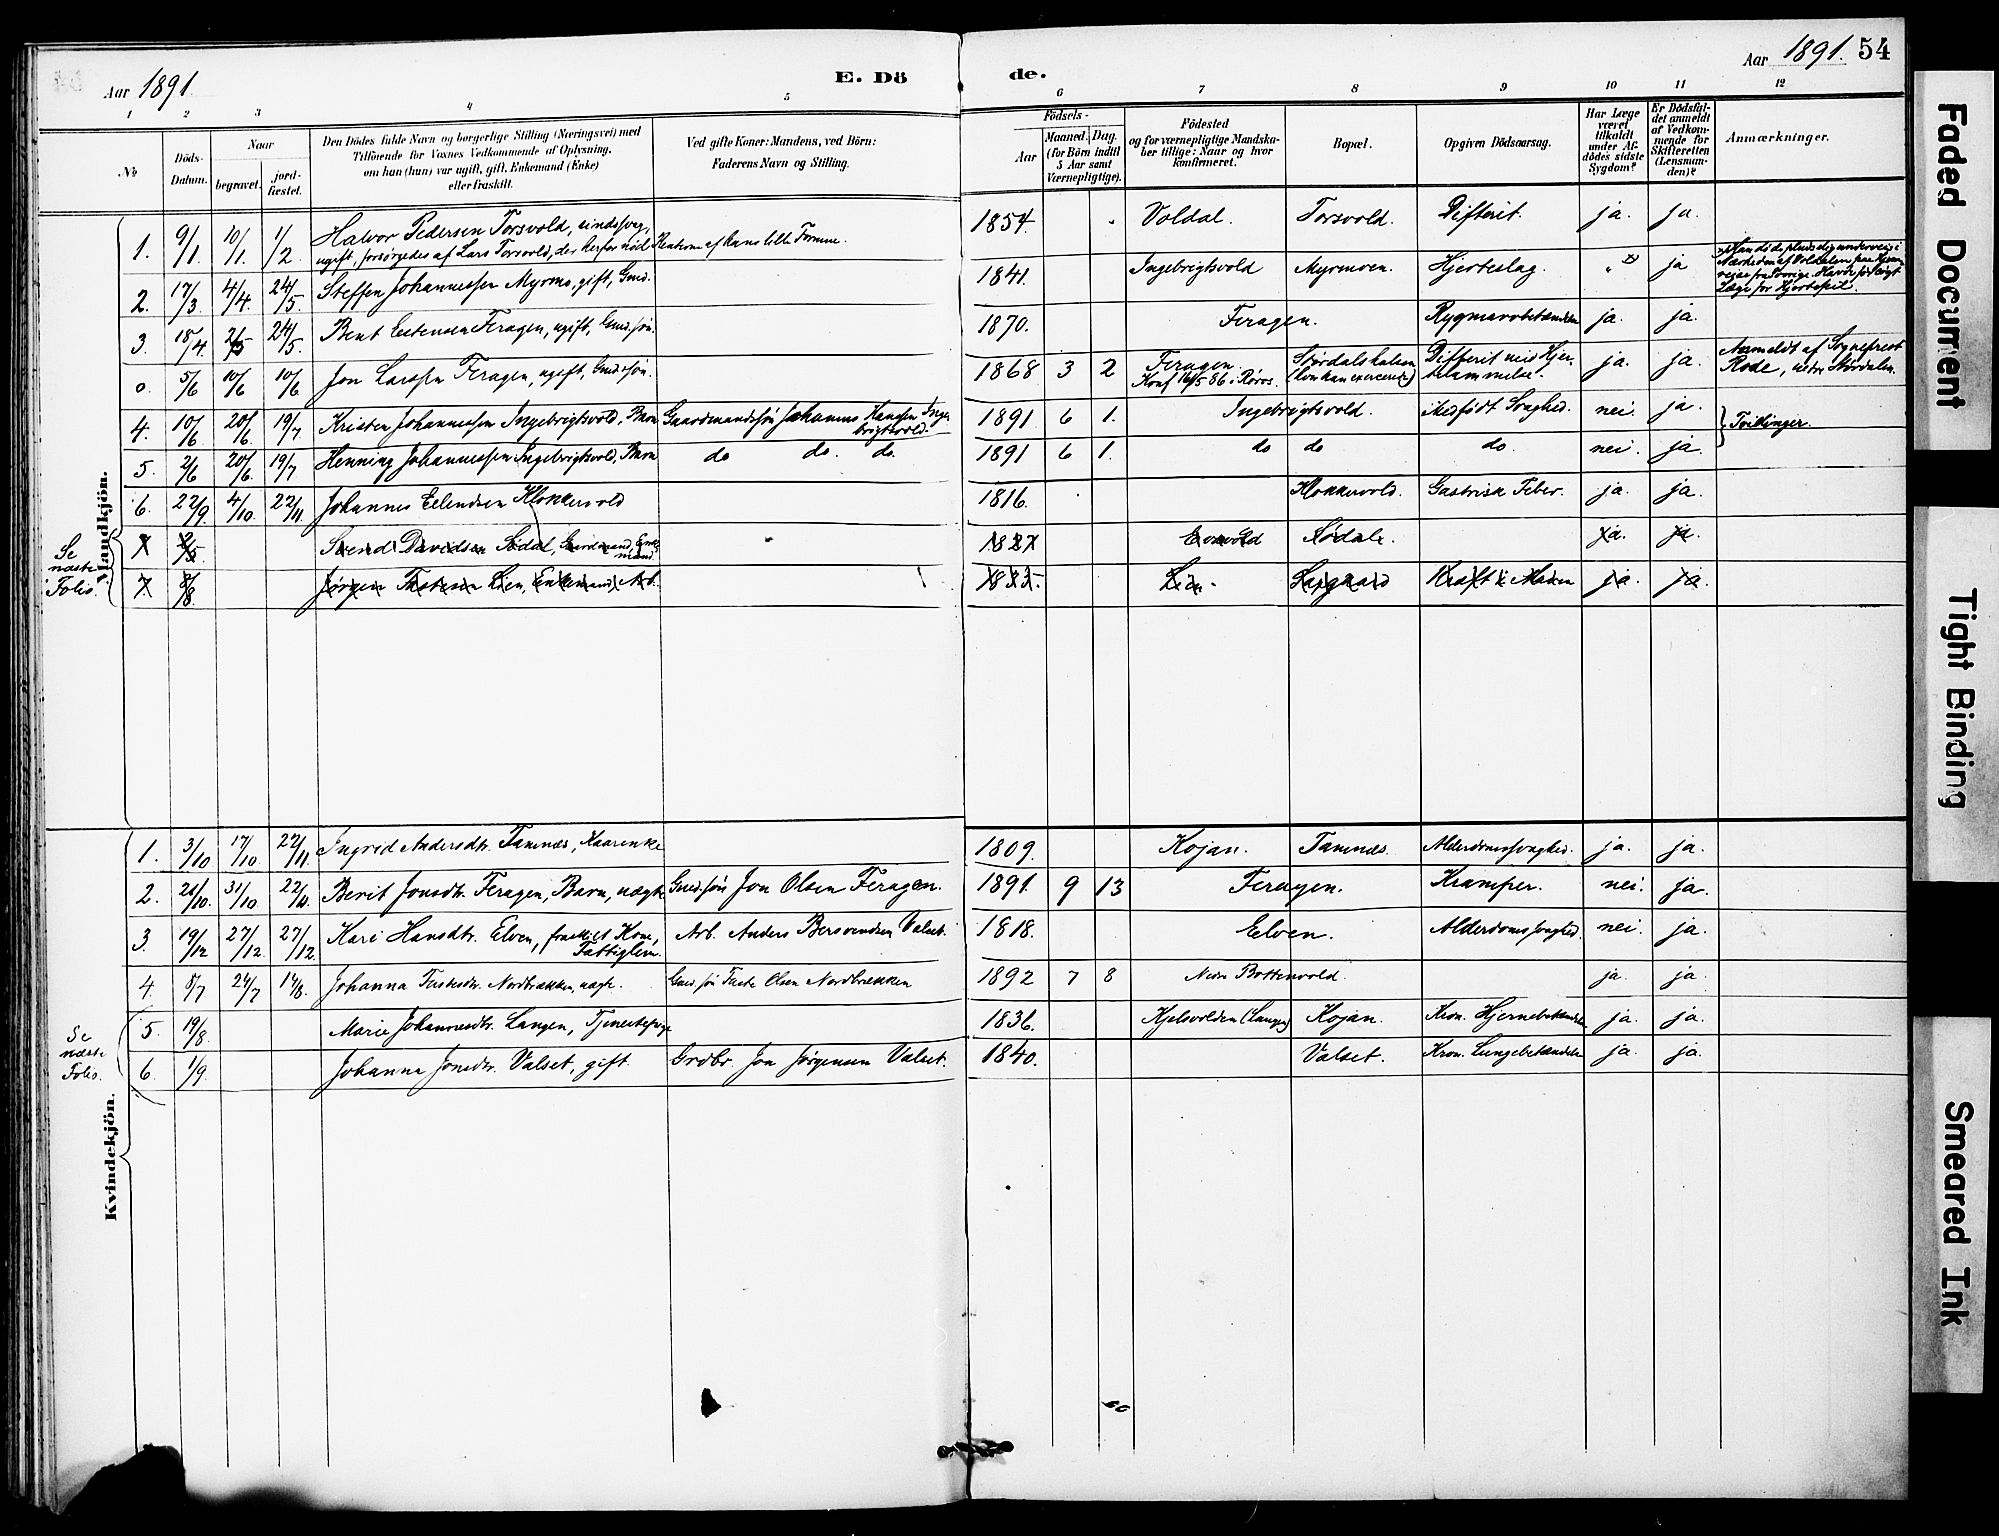 Aar 1891.
E. Dö
de.
Aar 1891. 54
1 2 3 4 5 6 7 8 9 10 11 12
No
Döds-
Datum.
Naar
begravet.
jord-
fæstet.
Den Dödes fulde Navn og borgerlige Stilling (Næringsvei) med
Tilföiende for Voxnes Vedkommende af Oplysning,
om han (hun) var ugift, gift, Enkemand (Enke)
eller fraskilt.
Ved gifte Koner: Mandens, ved Börn:
Faderens Navn og Stilling.
Födsels-
Aar
Maaned. Dag.
(for Börn indtil
5 Aar samt
Værnepligtige).
Födested
og for værnepligtige Mandska-
ber tillige: Naar og hvor
konfirmeret.
Bopæl.
Opgiven Dödsaarsag.
Har Læge
været
tilkaldt
under Af-
dödes sidste
Sygdom?
Er Dödsfal-
det anmeldt
af Vedkom-
mende for
Skifteretten
(Lensman-
den)?
Anmærkninger.
Mandkjön.
1. 9/1 10/1 1/2 Halvor Pedersen Torsvold, sindssvag, 1854. Voldal. Torsvold. Difterit. ja. ja.
ugift, forsørgedes af Lars Torsvold, der herfor nød Renterne af hans lille Formue.
2. 17/3 4/4 24/5 Steffen Johannessen Myrmo, gift, Gmd. 1841. Ingebrigtsvold Myrmoen. Hjerteslag. " ja
3. 18/4 2/5 24/5 Bent Estensen Feragen, ugift, Gmd.søn. 1870. Feragen. Rygmarvsbetændelse ja. ja.
o. 5/6 10/6 10/6 Jon Larssen Feragen, ugift, Gmd.søn. 1868 3 2 Feragen Stjørdalshalsen Difterit med Hjer- ja. ja. Anmeldt af Sogneprest
Konf 16/5 86 i Røros. (hvor han exercerede) telammelse. Rode, nedre Stördalen.
4. 10/6 20/6 19/7 Kristen Johannessen Ingebrigtsvold, Barn Gaardmandssøn Johannes Hansen Inge- 1891 6 1. Ingebrigtsvold. Medfødt Svaghed. nei. ja. Tvillinger.
brigtsvold.
5. 2/6 20/6 19/7 Henning Johannessen Ingebrigtsvold, Barn do do. do. 1891 6 1. do do do. nei. ja
6. 22/9 4/10 22/11. Johannes Erlendsen Klokkervold 1816. Klokkervold. Gastrisk Feber. ja. ja.
Se
næste
Folio.
7 2/5 Svend Davidsen Sødal, Gaardmand, Enke- 1827 Sødal. ja. ja.
mand.
7. 8/8. Jørgen Lien, Enkemand, Arb. 1823. Lien. Kræft i Maven ja ja.
Kvindekjön.
1. 3/10 17/10. 22/11. Ingrid Andersdtr. Tamnæs, Kaarenke 1809. Kojan. Tamnæs. Alderdomssvaghed. ja. ja.
2. 31/10 22/11. Berit Jonsdtr. Feragen, Barn, uægte Gmd.søn Jon Olsen Feragen. 1891. 9 13 Feragen. Kramper. nei. ja.
3. 19/12 27/12. 27/12. Kari Hansdtr. Elven, fraskilt Kone, Arb. Anders Bersvendsen Valset. 1818. Elven. Alderdomssvaghed. nei. ja.
Fattiglem.
4. 8/7 24/7 14/8. Johanna Nordbrekken, uægte. Gmd.søn Olsen Nordbrekken 1892 7 8 Nedre Bottenvold. ja. ja.
Se
næste
Folio.
5. 19/8. Marie Johannesdtr. Langen, Tjenestepige 1836. Kjelsvolden (Langen) Kojan. Kron. Hjernebetændelse ja. ja.
6. 1/9. Johanna Jonsdtr. Valset, gift. Grdbr. Jon Jørgensen Valset. 1840. Valset. Kron. Lungebetændelse ja. ja.
Faded Document
Tight Binding
Smeared Ink